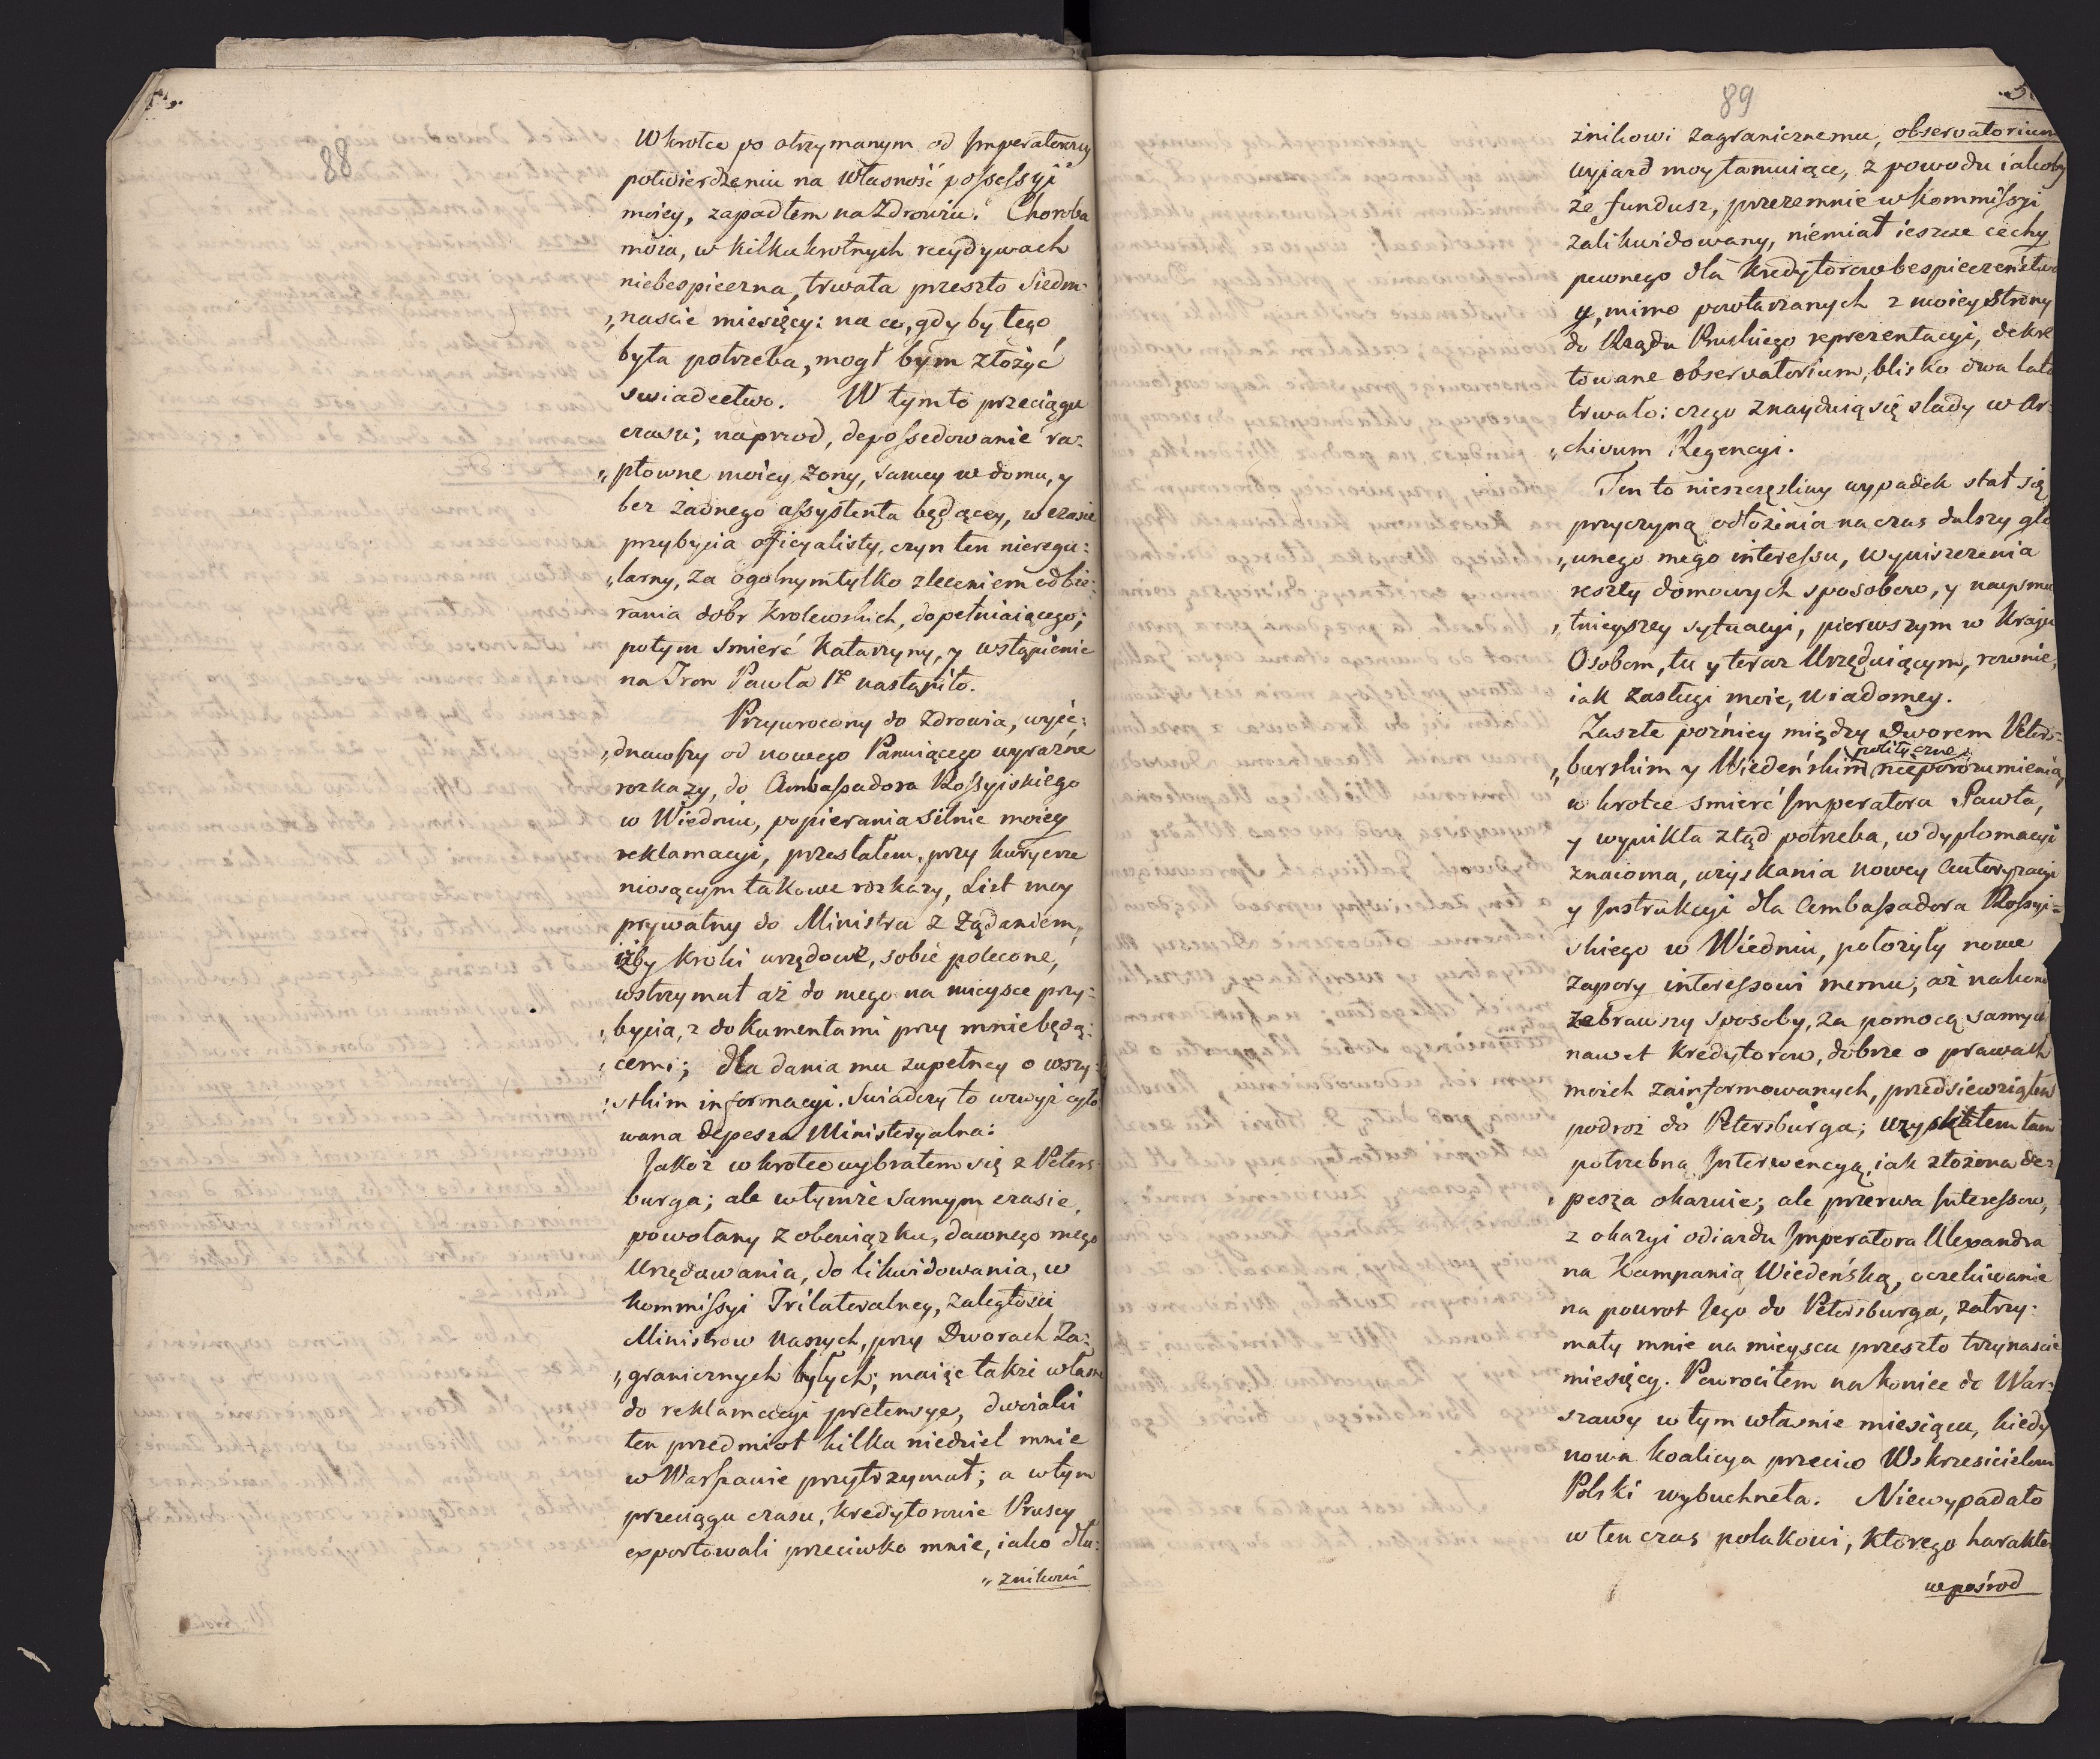 88
Wkrotce po otrzymanym od Imperatorowy
potwierdzeniu na własność possessyi
moiey, zapadłem na Zdrowiu. Choroba
moia, w kilkukrotnych recydywach
niebespieczna, trwała przeszło siedm-
„naście miesięcy: na co, gdyby tego
była potrzeba, mogł bym złożyć
swiadectwo. W tymto przeciągu
czasu; naprzod, depossedowanie ra-
„ptowne moiey żony, samey w domu, y
bez żadnego assystenta będącey, w czasie
przybycia oficyalisty, czyn ten nieregu:
„larny, za ogolnym tylko zleceniem odbie:
rania dobr Krolewskich, dopełniaiącego;
potym smierć Katarzyny, y wstąpienie
na Tron Pawła Igo nastąpiło.
Przywrocony do Zdrowia, wyie:
„dnawszy od nowego Panuiącego wyrazne
rozkazy, do Ambassadora Rossyiskiego
w Wiedniu, popierania silnie moiey
reklamacyi, przesłałem, przy kuryerze
niosącym takowe rozkazy, List moy
prywatny do Ministra z żądaniem,
iżby kroki urzędowe, sobie polecone,
wstrzymał aż do mego na mieysce przy:
„bycia, z dokumentami przy mnie będą:
„cemi; dla dania mu zupełney o wszy:
„stkim informacyi. Swiadczy to wzwyż cyto
wana depesza Ministeryalna:
Jakoż wkrotce wybrałem się z Peters-
burga; ale w tymże samym czasie,
powołany z obowiązku, dawnego mego
Urzędowania, do likwidowania, w
kommissyi Trilateralney, zaległości
Ministrow naszych, przy Dworach Za:
„granicznych byłych; maiąc także własne
do reklamacyi pretensye, dwoiaki
ten przedmiot kilka niedziel mnie
w Warszawie przytrzymał; a w tym
przeciągu czasu, kredytorowie Pruscy
exportowali przeciwko mnie, iako dłu:
„żnikowi
89
żnikowi zagranicznemu, observatorium
wyiazd moy tamuiące, z powodu iakoby
że fundusz, przezemnie w kommissyi
zalikwidowany, niemiał ieszcze cechy
pewnego dla kredytorow bespieczeństwa
y, mimo powtarzanych z moiey strony
do Rządu Pruskiego reprezentacyi, dekre
towane observatorium, blisko dwa lata
trwało: czego znayduią się slady w Ar-
„chivum Regencyi.
Ten to nieszczęsliwy wypadek stał się
przyczyną odłożenia na czas dalszy głó
„wnego mego interessu, wyniszczenia
reszty domowych sposobow, y naysmu
„tnieyszey sytuacyi, pierwszym w Kraju
Osobom, tu y teraz Urzęduiącym, rownie,
iak zasługi moie, wiadomey.
Zaszłe poźniey między Dworem Peters-
politÿczne
„burskim y Wiedeńskim nieporozumienia,
wkrotce smierć Imperatora Pawła,
y wynikła ztąd potrzeba, w dyplomacyi
znaioma, uzyskania nowey Autoryzacyi
y Instrukcyi dla Ambassadora Rossyi=
skiego w Wiedniu, położyły nowe
zapory interessowi memu; aż nakoni
zebrawszy sposoby, za pomocą samych
nawet kredytorow, dobrze o prawach
moich zainformowanych, przedsiewziąłem
podroż do Petersburga; uzyskałem tam
potrzebną Interwencyą, iak złożona de:
„pesza okazuie; ale przerwa Interessow,
z okazyi odiazdu Imperatora Alexandra
na Kampanią Wiedeńską, oczekiwanie
na powrot Jego do Petersburga, zatrzy:
mały mnie na mieyscu przeszło trzynascie
miesięcy. Powrociłem nakoniec do War:
szawy w tym własnie miesiącu, kiedy
nowa koalicya przeciw Wskrzesicielom
Polski wybuchneła. Niewypadało
w ten czas polakowi, ktorego harakte
wpośrod